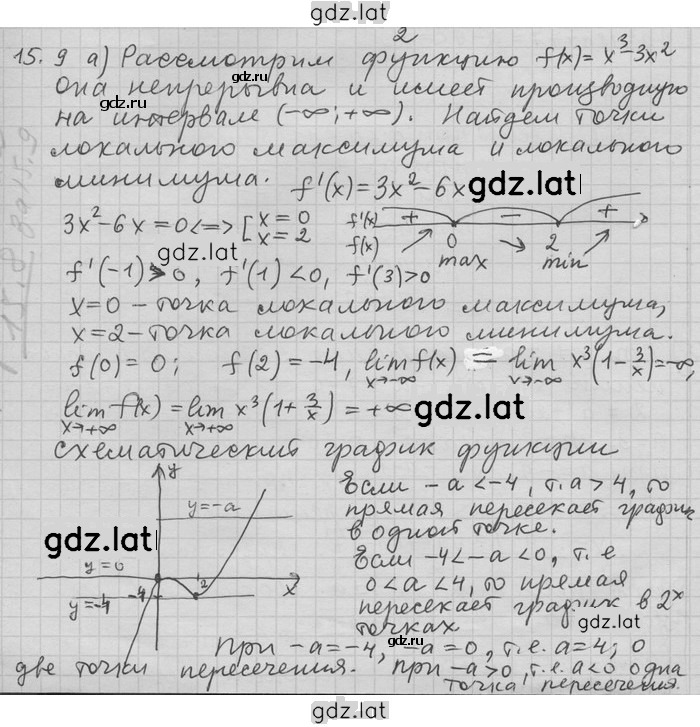 gdz.lat
2
15.9 а) Рассмотрим функцию f(x)= x³-3x²
она непрерывна и имеет производную
gdz.ru
на интервале (-∞;+∞). Найдем точки
локального максимума и локального
минимума. f'(x)=3x²-6x gdz.lat
3x²-6x=0<=>[x=0 x=2
f'(x) + - +
f(x) 0 2
max min
gdz.lat
f'(-1)>0, f'(1)<0, f'(3)>0
x=0-точка локального максимума,
x=2-точка локального минимума.
f(0)=0; f(2)=-4, lim f(x) = lim x³(1-3/x)=-∞,
x→-∞ x→-∞
lim f(x)=lim x³(1+3/x)=+∞ gdz.lat
x→+∞ x→+∞
схематический график функции
y
y=-a
gdz.lat
y=0
2
x
y=-4 -4
Если -a<-4, т.a>4, то
прямая пересекает график
gdz.ru
в одной точке.
Если -4<-a<0, т.е
0<a<4, то прямая
пересекает график в 2ˣ
точках
При -a=-4, -a=0, т.е.a=4; 0
gdz.ru
две точки пересечения. при-a>0, т.е.a<0 одна
точка пересечения.
gdz.lat